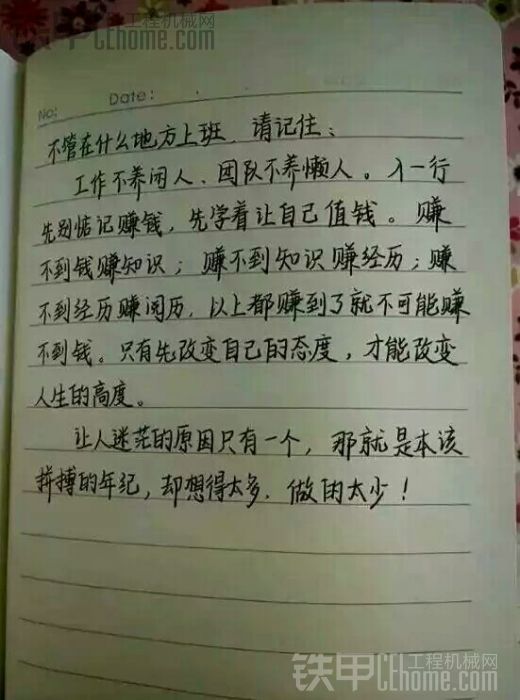 铁甲 工程机械网
CEhome.com
No:
Date:
不管在什么地方上班、请记住：
工作不养闲人、团队不养懒人。入一行
先别惦记赚钱，先学着让自己值钱。赚
不到钱赚知识；赚不到知识赚经历；赚
不到经历赚阅历，以上都赚到了就不可能赚
不到钱。只有先改变自己的态度，才能改变
人生的高度。
让人迷茫的原因只有一个，那就是本该
拼搏的年纪，却想得太多、做的太少！
铁甲 工程机械网
CEhome.com